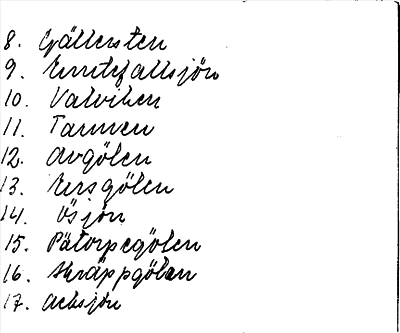 8. Gällersten
9. Emtefallsjön
10. Valviken
11. Tarmen
12. Avgölen
13. Kersgölen
14. Ösjön
15. Pätorpegölen
16. Skräppgölen
17. Acksjön